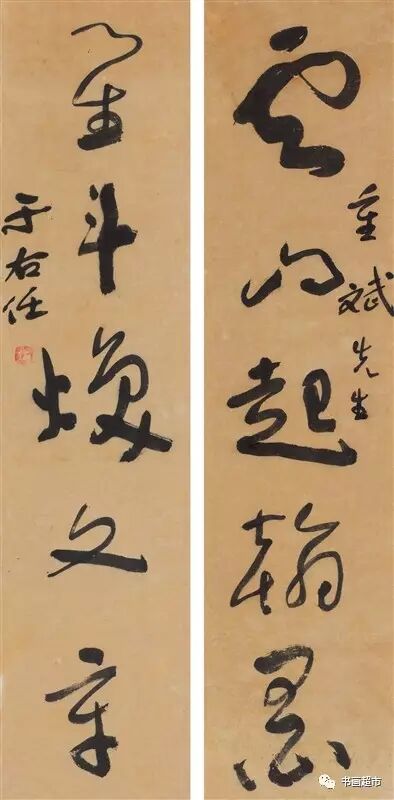 雲山起翰墨
重斌先生
星斗煥文章
于右任
书画超市